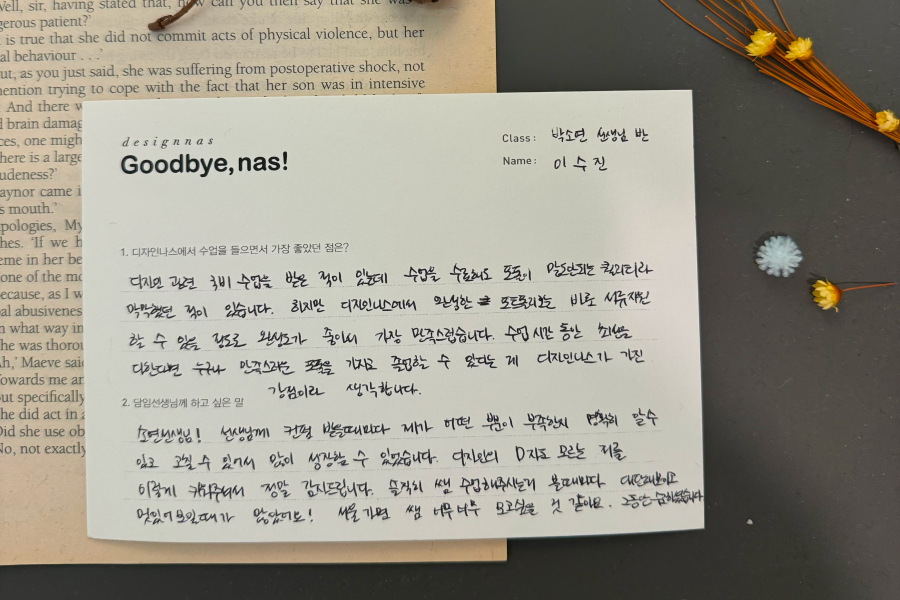 Well, sir, having stated that, how can you then say that she was
gerous patient?'
is true that she did not commit acts of physical violence, but her
al behaviour . . .'
ut, as you just said, she was suffering from postoperative shock, not
mention trying to cope with the fact that her son was in intensive
And there w
d brain damag
ces, one migh
here is a large
udeness?'
aynor came i
s mouth.'
pologies, My
hes. 'If we h
eme in her be
one of the mo
ecause, as I w
al abusiveness
n what way in
he was thorou
Ah,' Maeve said
Towards me an
but specifically
he did act in a
Did she use ob
No, not exactly
designnas
Goodbye, nas!
Class: 박소연 선생님 반
Name: 이수진
1. 디자인나스에서 수업을 들으면서 가장 좋았던 점은?
디자인 관련 국비 수업을 받은 적이 있는데 수업을 수료해도 포폴이 말도안되는 퀄리티라
막막했던 적이 있습니다. 하지만 디자인나스에서 완성한 포트폴리오는 바로 서류지원
할 수 있을 정도로 완성도가 좋아서 가장 만족스럽습니다. 수업시간 동안 최선을
다한다면 누구나 만족스러운 포폴을 가지고 졸업할 수 있다는 게 디자인나스가 가진
강점이라 생각합니다.
2. 담임선생님께 하고 싶은 말
소연선생님! 선생님께 컨펌 받을때마다 제가 어떤 부분이 부족한지 명확히 알수
있고 고칠 수 있어서 많이 성장할 수 있었습니다. 디자인의 D자도 모르는 저를
이렇게 키워주셔서 정말 감사드립니다. 솔직히 쌤 수업해주시는거 볼때마다 대단해보이고
멋있어보일때가 많았어요! 서울가면 쌤 너무너무 보고싶을 것 같아요. 그동안